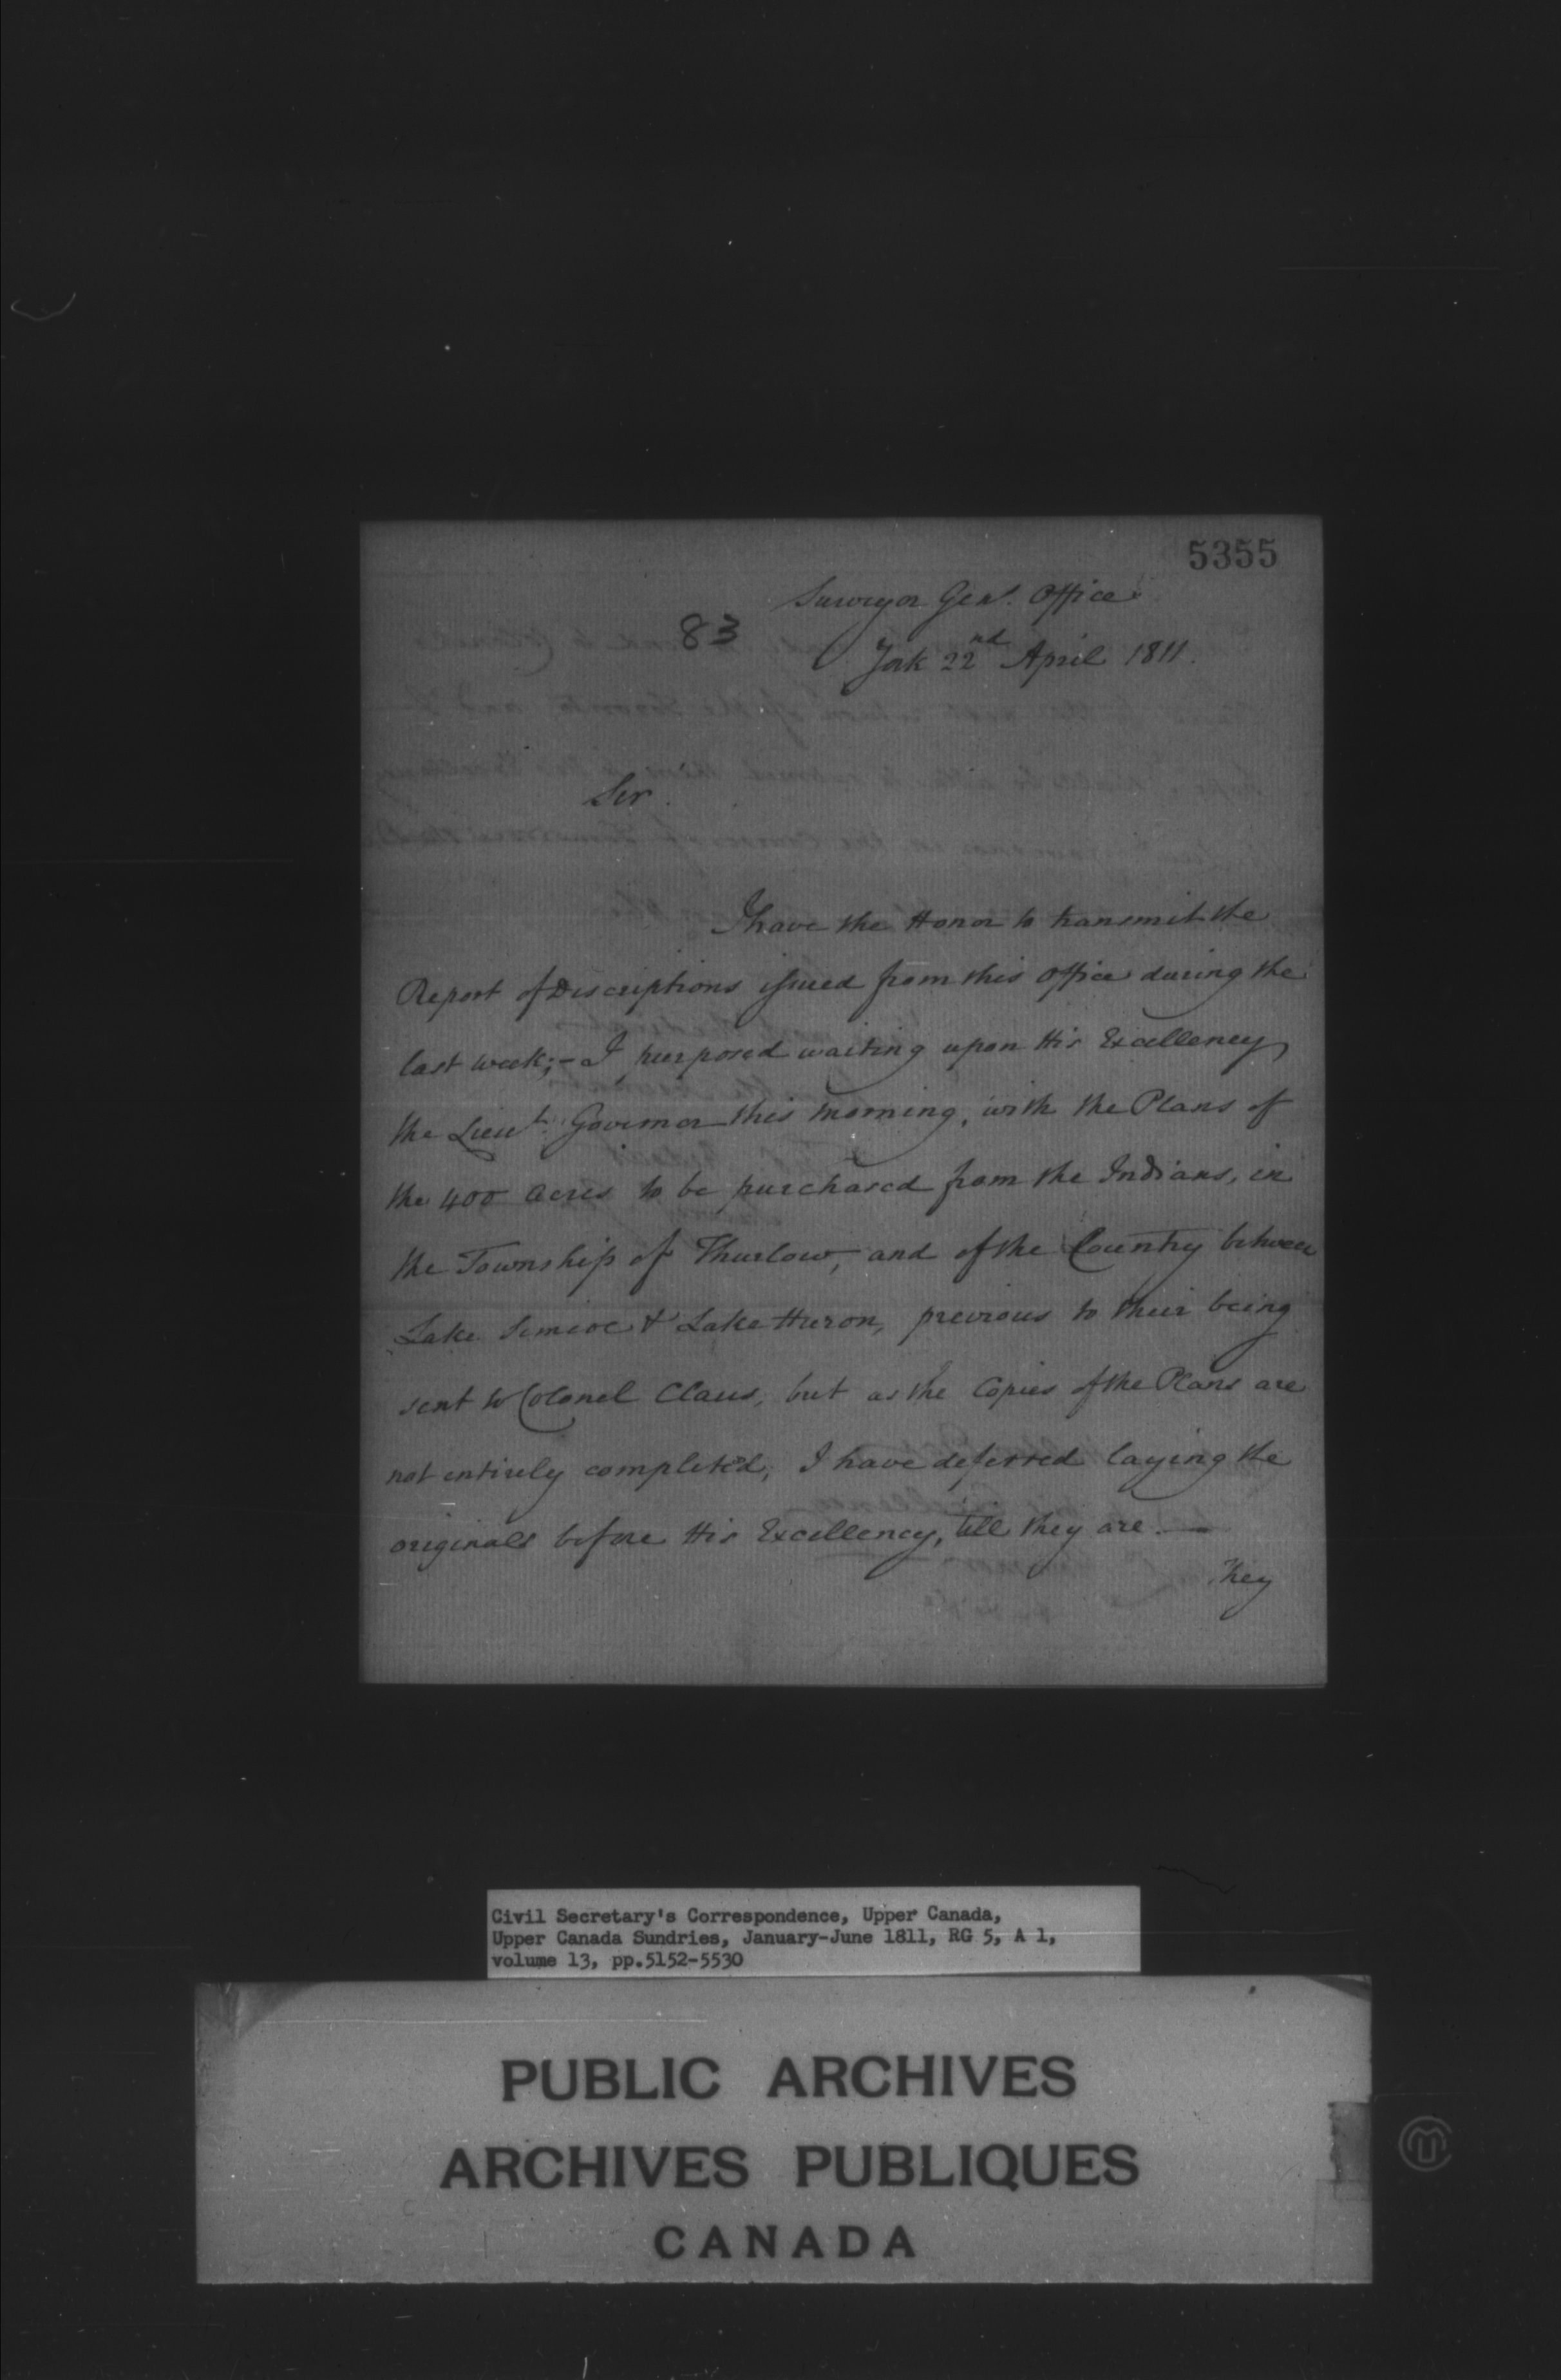 5355
Surveyor Genl. Office
83
York 22nd April 1811.
Sir.
I have the Honor to transmit the
Report of Descriptions issued from this Office during the
last week;– I purposed waiting upon His Excellency
the Lieut. Governor this morning, with the Plans of
the 400 acres to be purchased from the Indians, in
the Township of Thurlow, and of the Country between
Lake Simcoe & Lake Huron, previous to their being
sent to Colonel Claus, but as the Copies of the Plans are
not entirely completed, I have deferred laying the
originals before His Excellency, till they are.—
They
Civil Secretary's Correspondence, Upper Canada,
Upper Canada Sundries, January-June 1811, RG 5, A 1,
volume 13, pp.5152-5530
PUBLIC ARCHIVES
ARCHIVES PUBLIQUES
CANADA